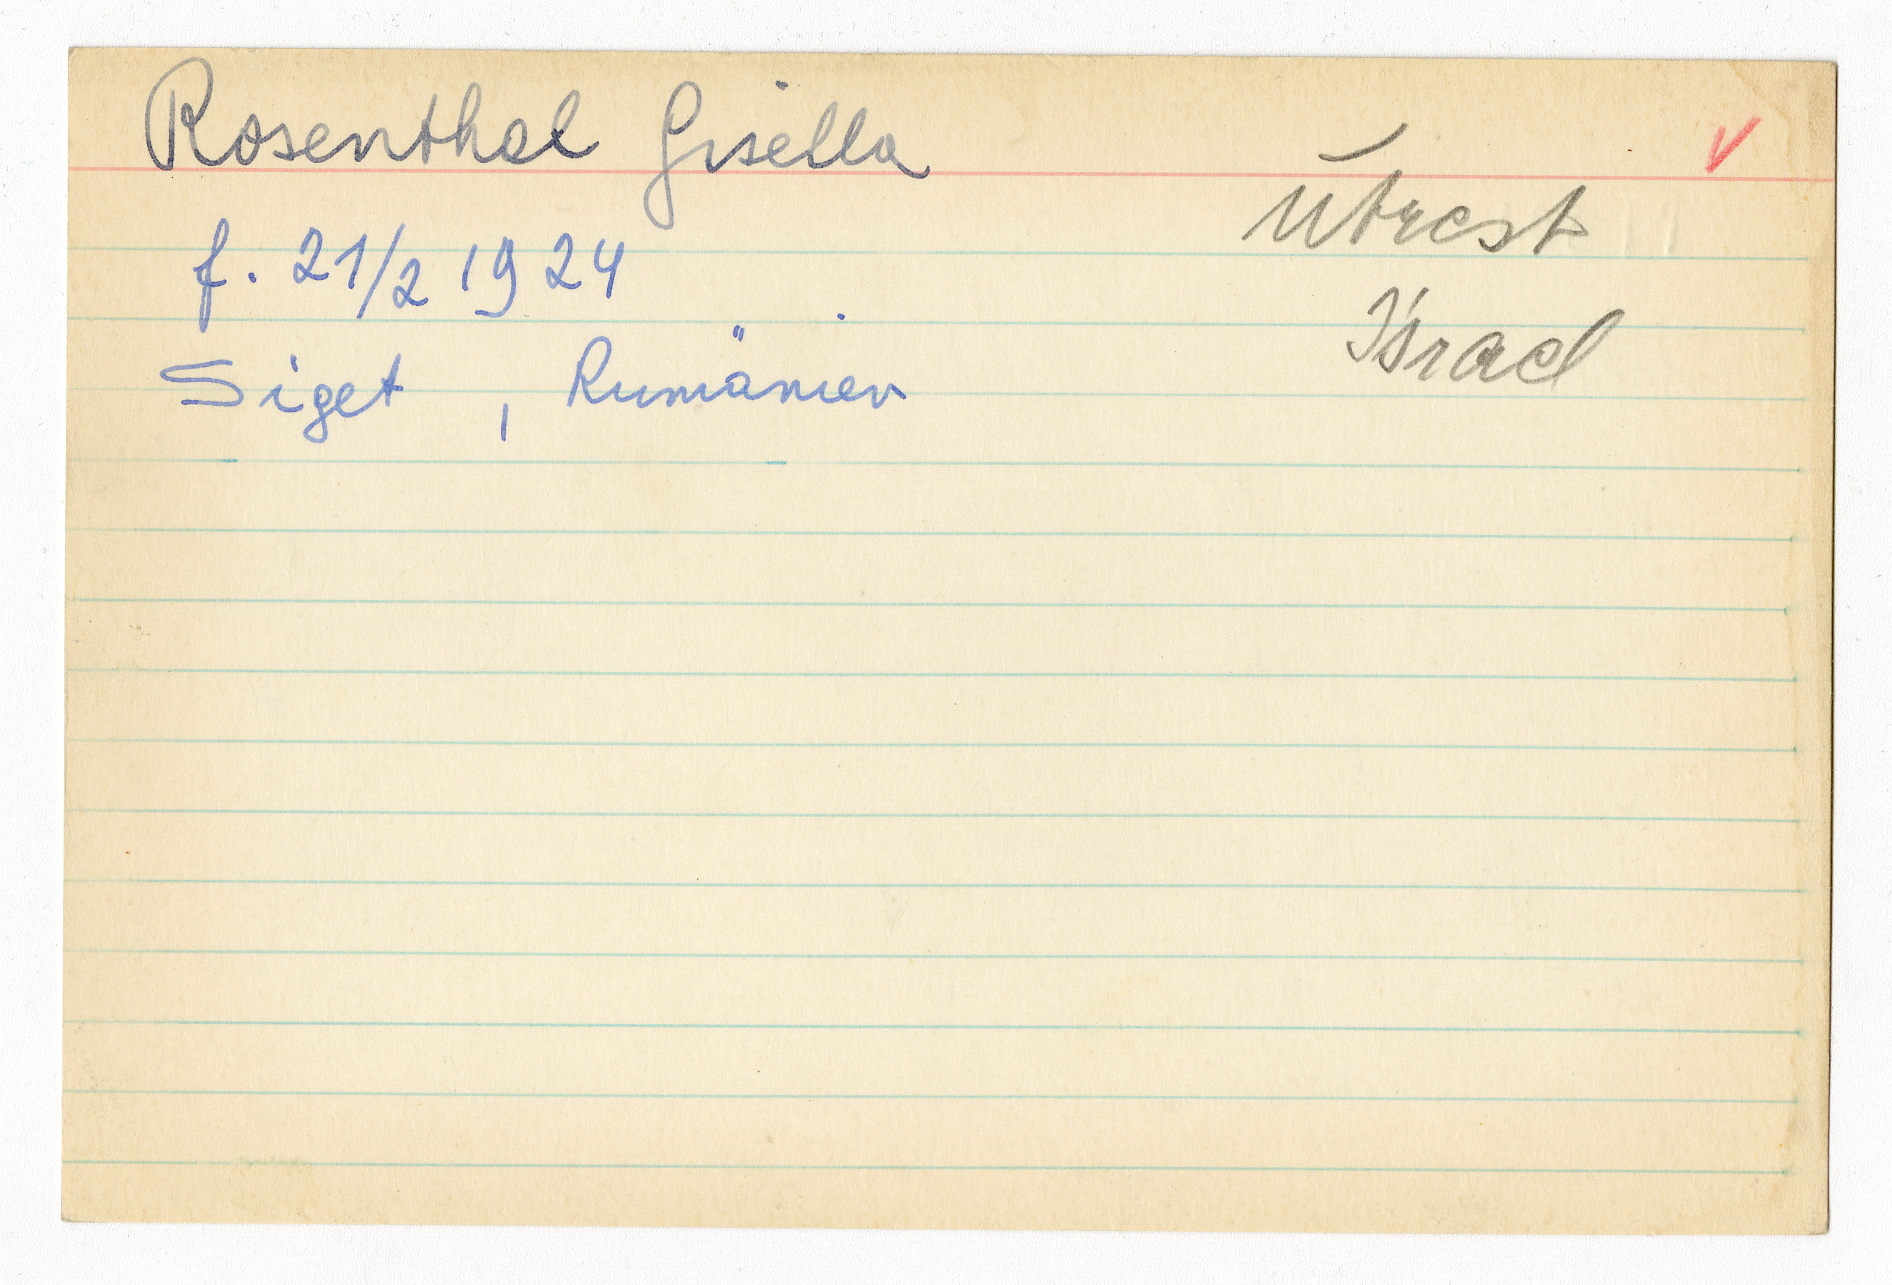 Rosenthal Gisella
f. 21/2 1924
Siget, Rumänien
Utrest
Israel